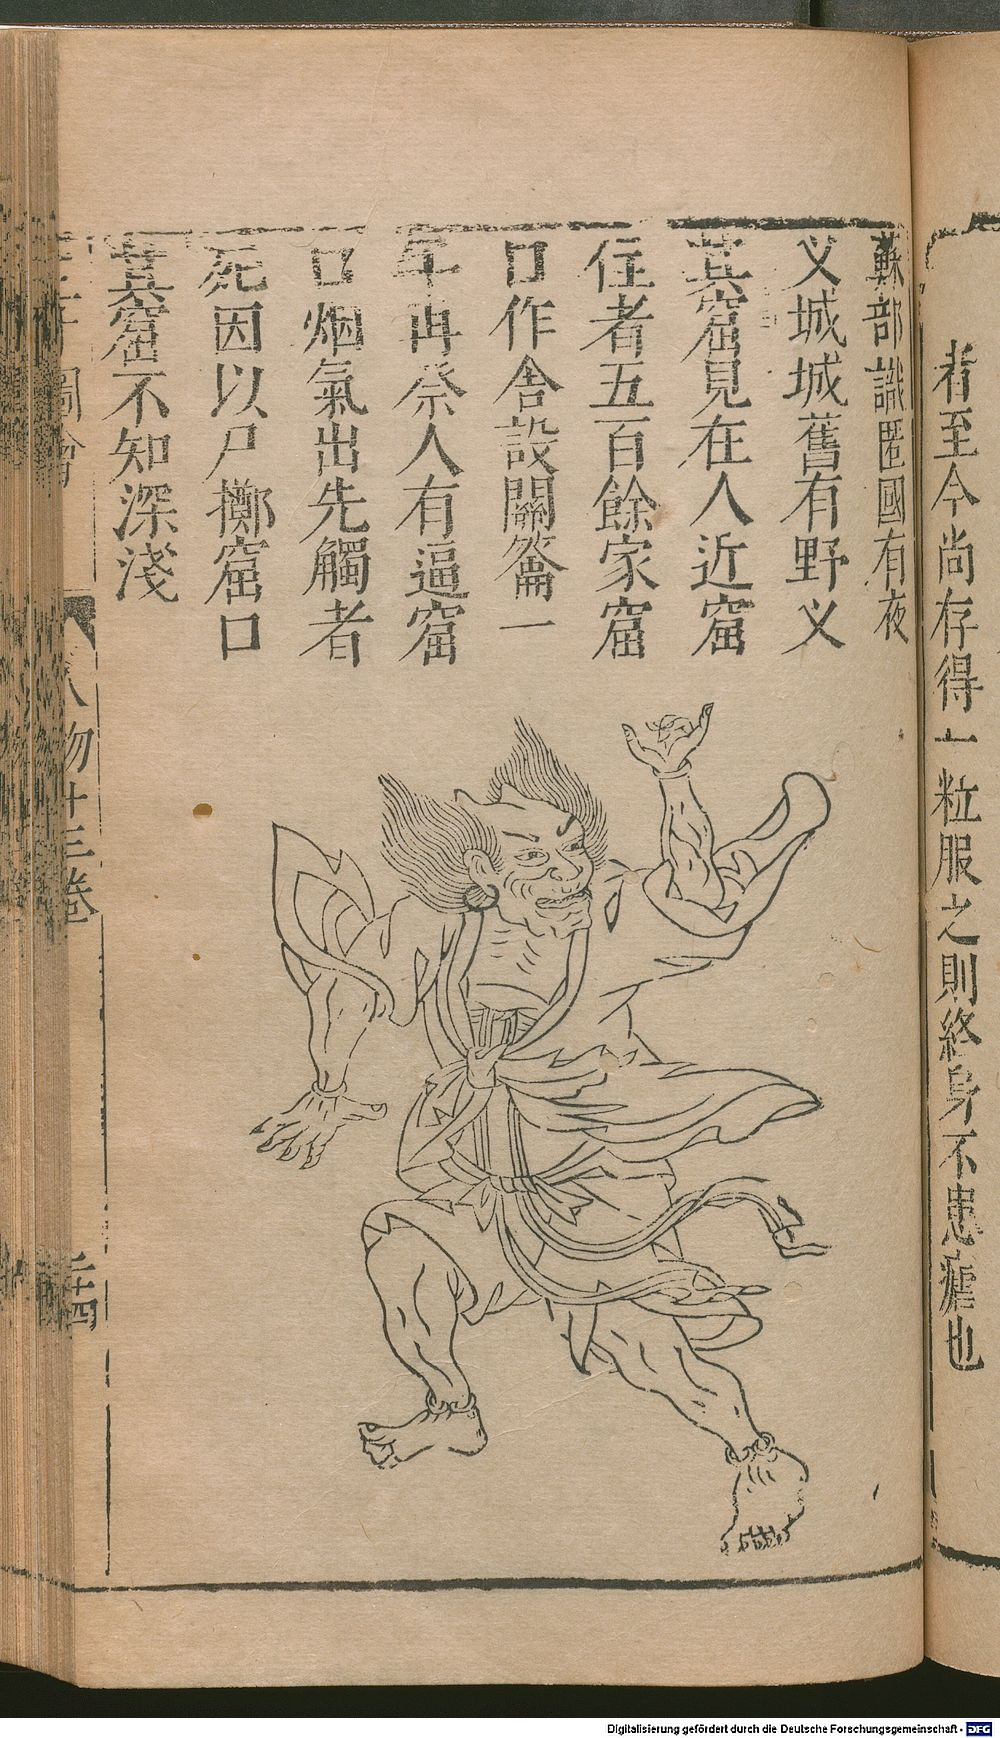 者至今尚存得一粒服之則終身不患瘧也
蘇部識匿國有夜
义城城舊有野义
其窟見在人近窟
住者五百餘家窟
口作舍設關籥一
年再祭人有逼窟
口烟氣出先觸者
死因以尸擲窟口
其窟不知深淺
圖會
人物十三卷
二十四
Digitalisierung gefördert durch die Deutsche Forschungsgemeinschaft - DFG